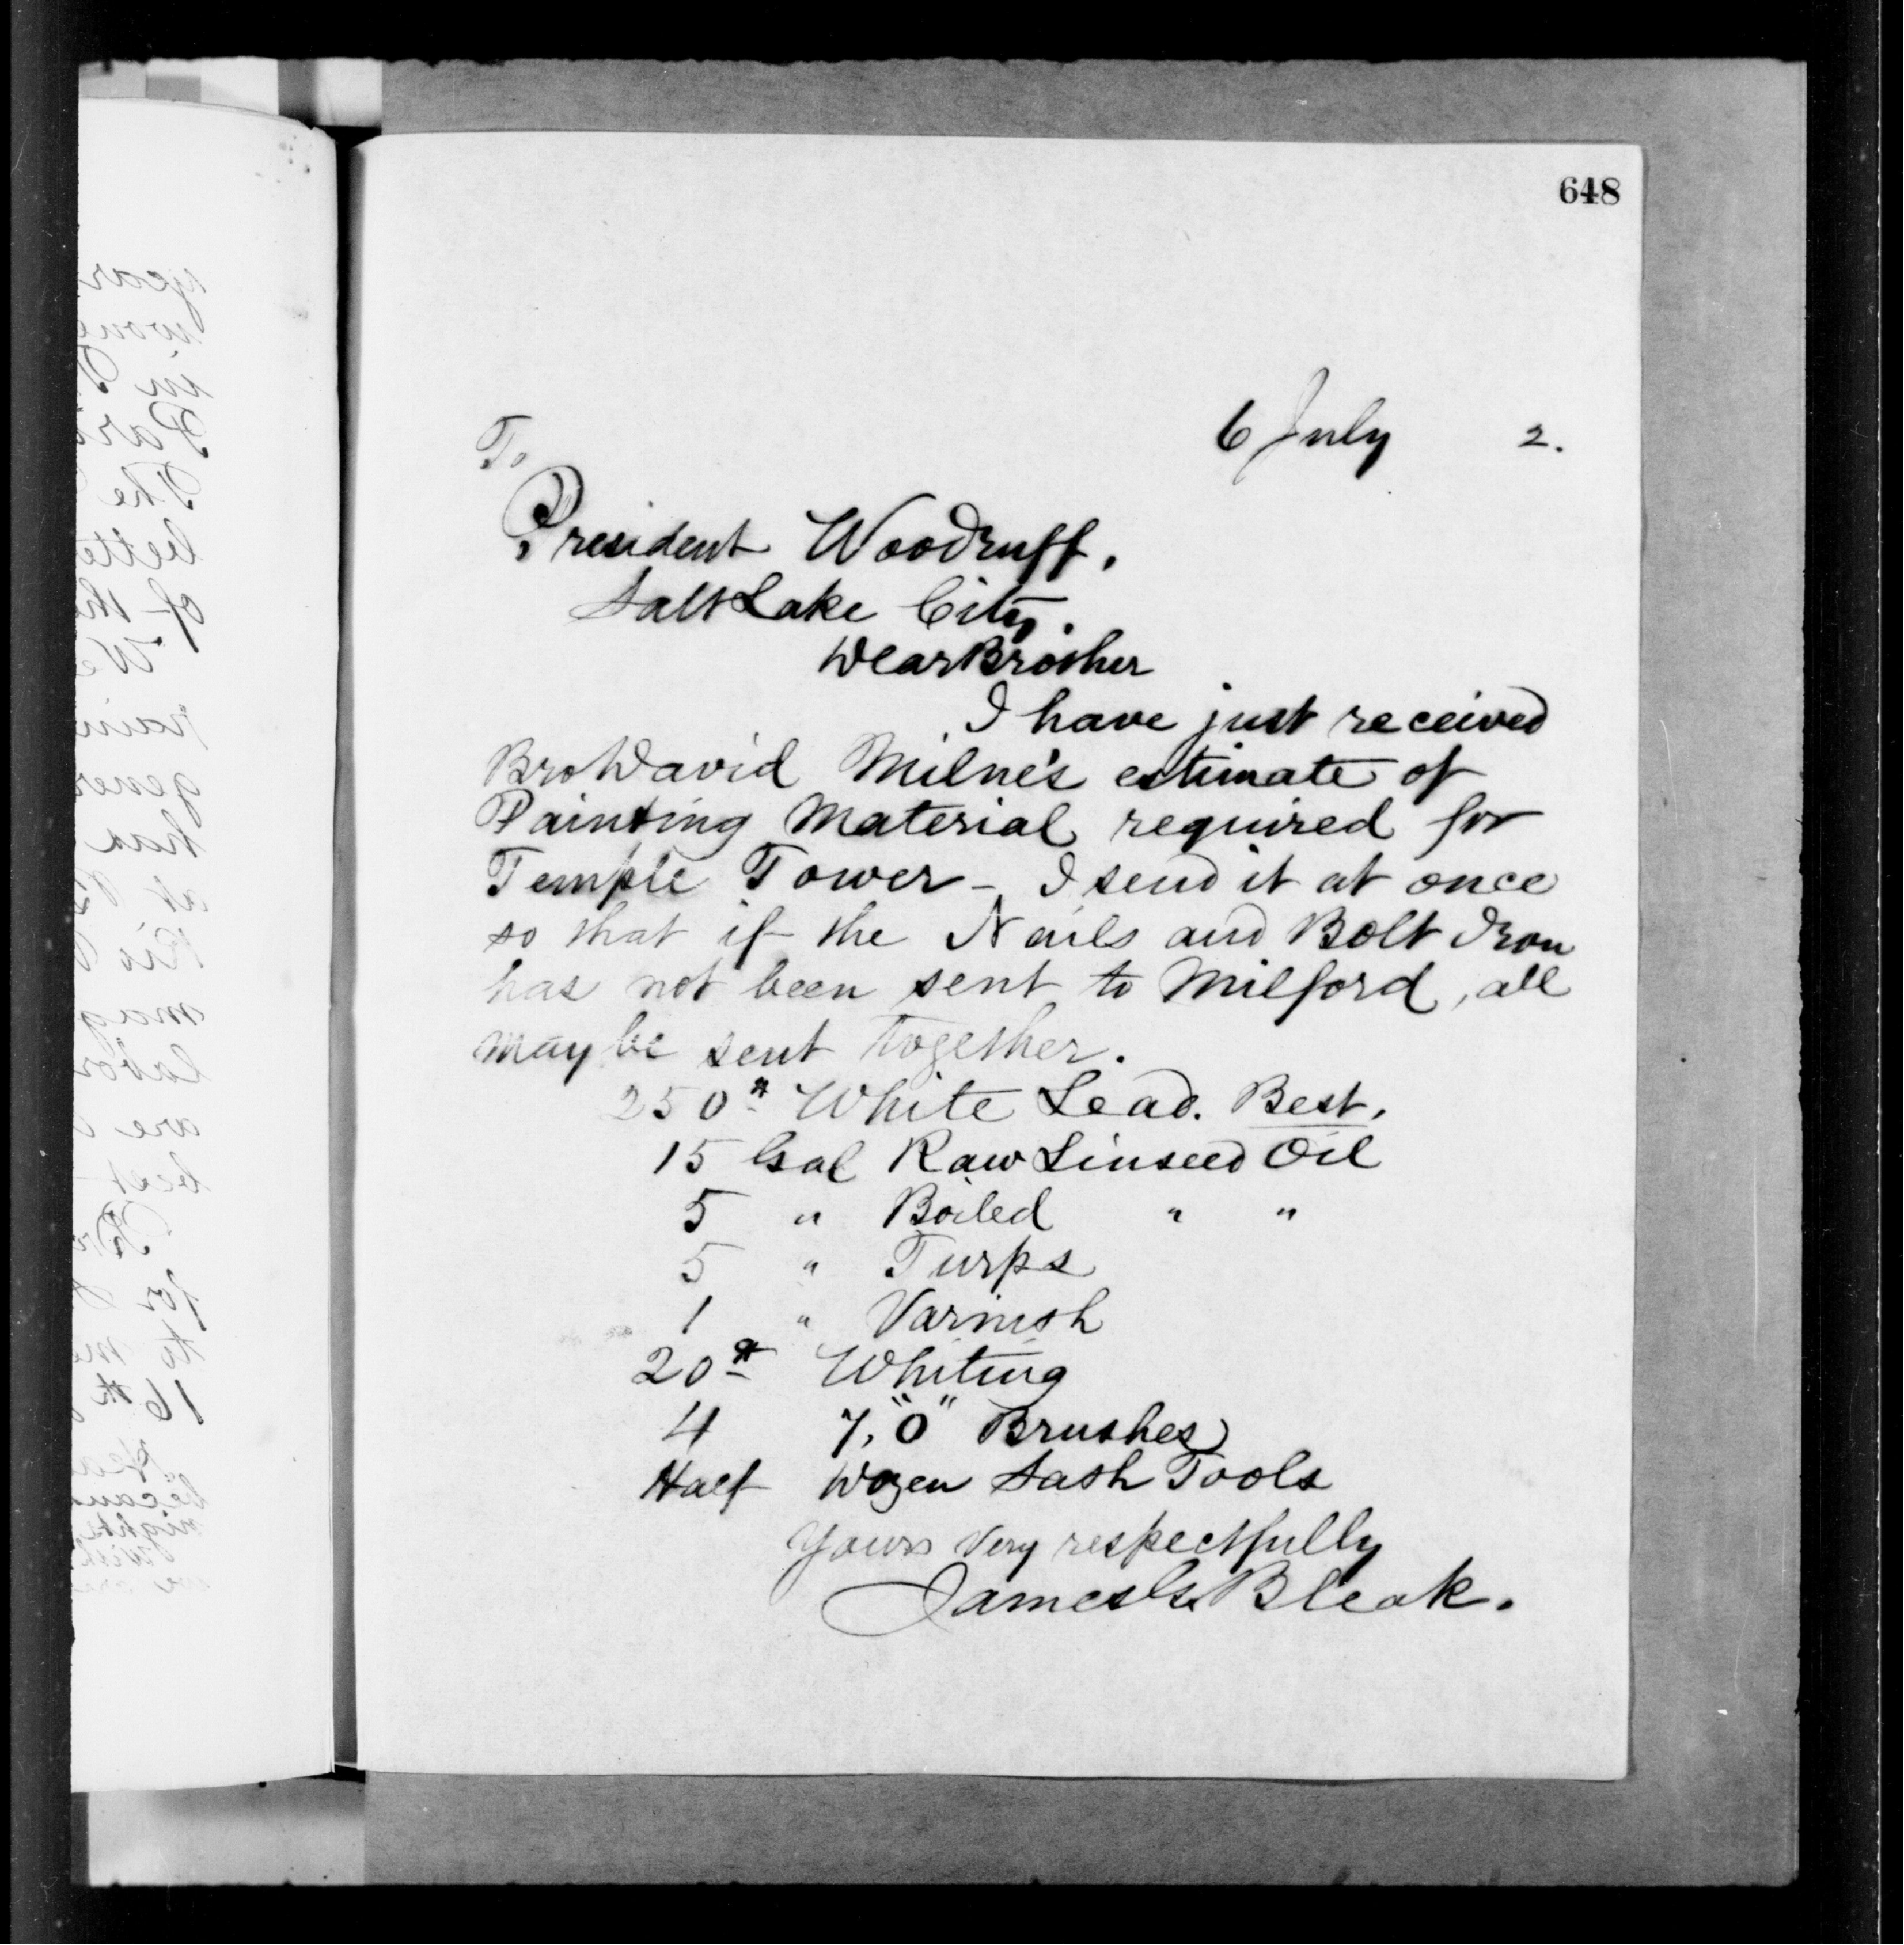 648
6 July 2.
To
President Woodruff,
Salt Lake City.
Dear Brother
I have just received
Bro David Milne's estimate of
Painting Material required for
Temple Tower - I send it at once
so that if the Nails and Bolt Iron
has not been sent to Milford, all
may be sent together.
250# White Lead. Best.
15 Gal Raw Linseed Oil
5 " Boiled " "
5 " Turps
1 " Varnish
20# Whiting
4 7, "0" Brushes
Half Dozen Sash Tools
Yours Very respectfully
James G. Bleak.